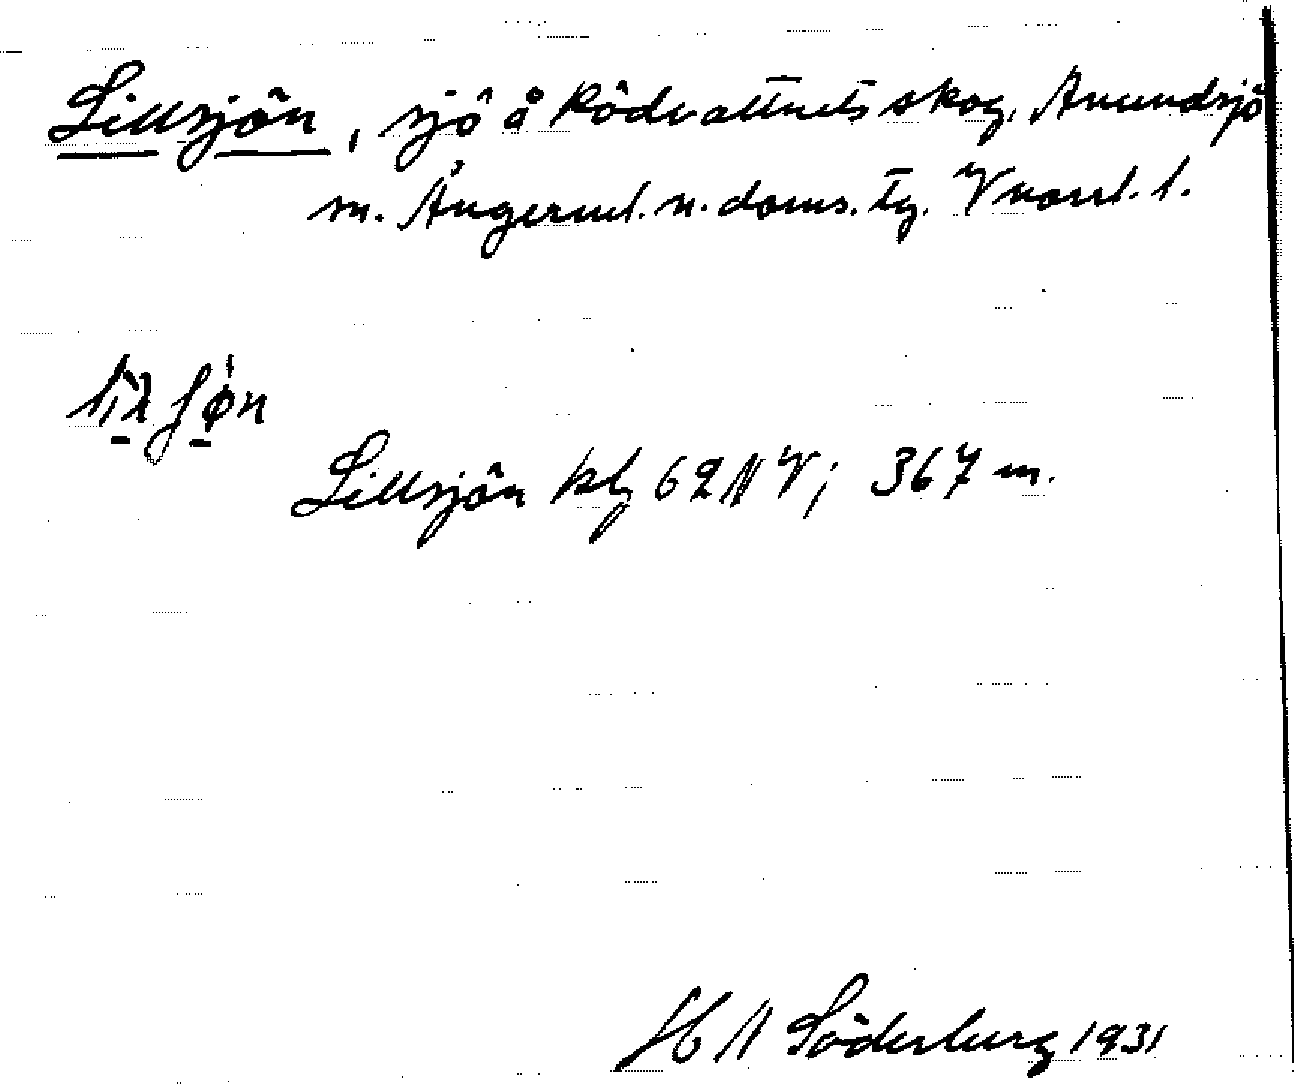 Lillsjön, sjö å Rödvattnets skog, Anundsjö
sn. Ångerml. n. doms. tg. Vnorrl. l.
Lillsjön kbl 62 NV; 367 m.
H N Söderberg 1931